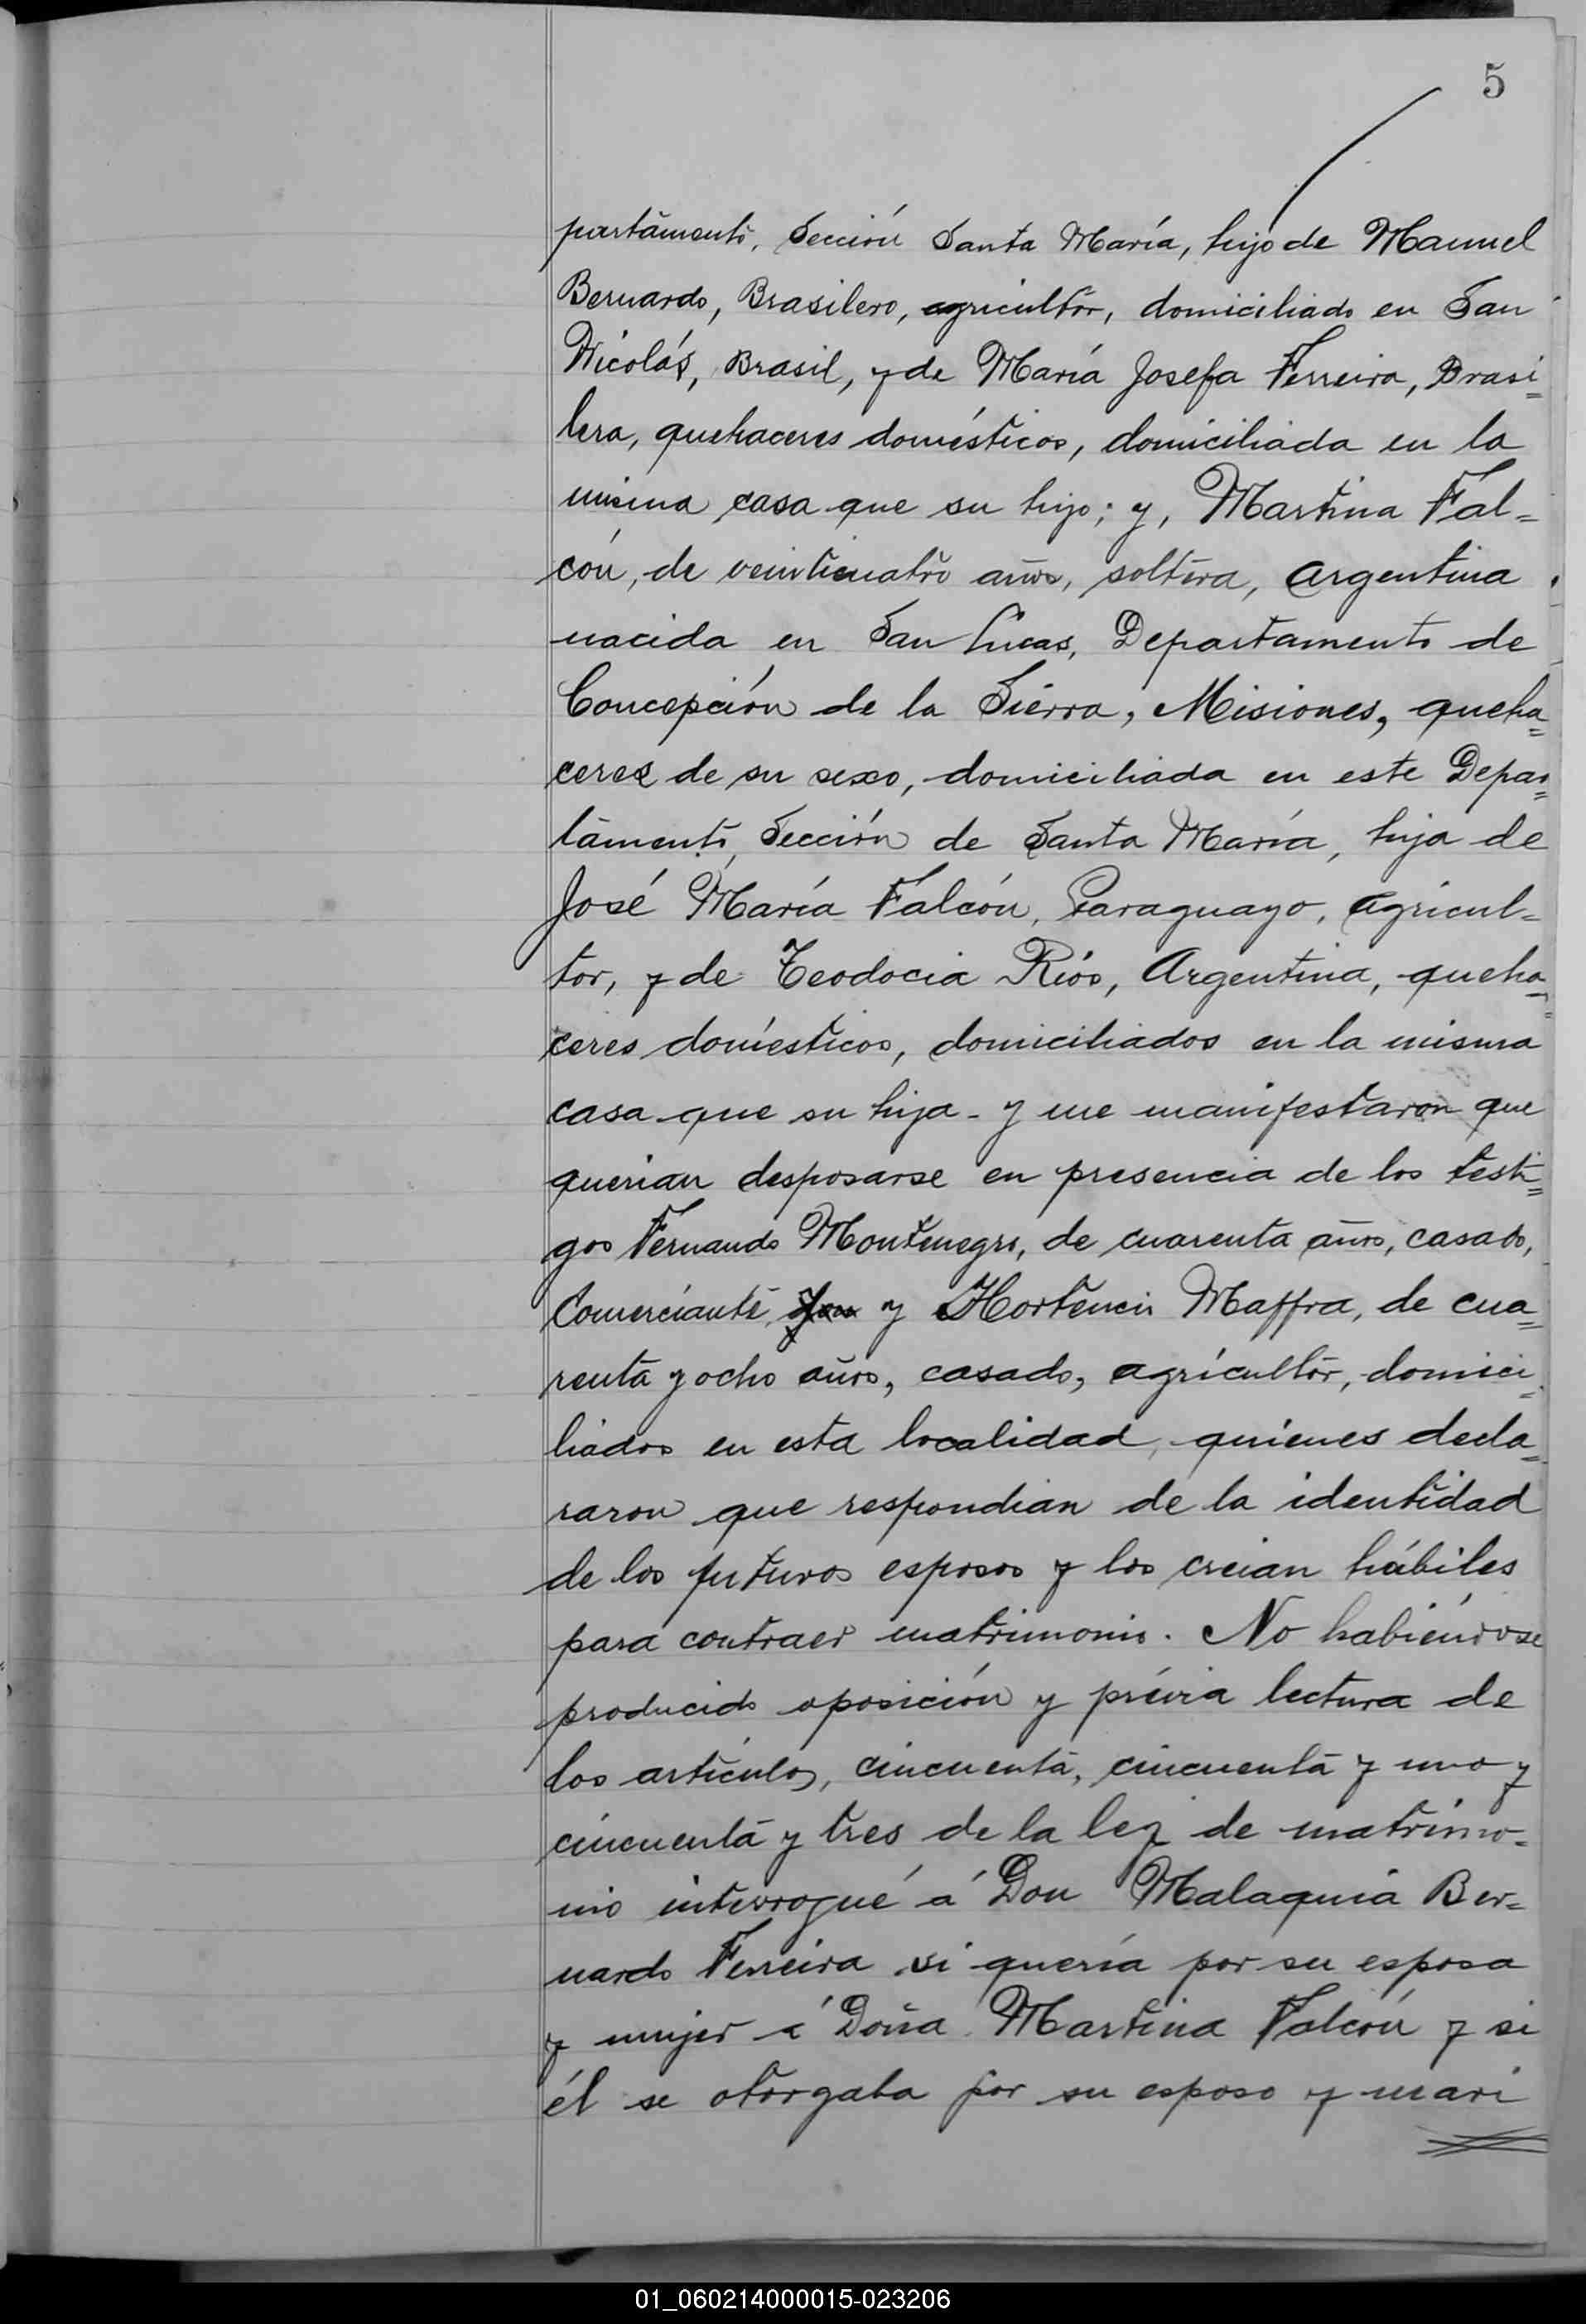 5
partamento, Sección Santa María, hijo de Manuel
Bernardo, Brasilero, agricultor, domiciliado en San
Nicolás, Brasil, y de María Josefa Ferreira, Brasi=
lera, quehaceres domésticos, domiciliada en la
misma casa que su hijo; y, Martina Fal=
cón, de veinticuatro años, soltera, Argentina
nacida en San Lucas, Departamento de
Concepción de la Sierra, Misiones, queha=
ceres de su sexo, domiciliada en este Depar=
tamento, Sección de Santa María, hija de
José María Falcón, Paraguayo, Agricul=
tor, y de Teodocia Ríos, Argentina, queha=
ceres domésticos, domiciliados en la misma
casa que su hija - y me manifestaron que
querian desposarse en presencia de los testi=
gos Fernando Montenegro, de cuarenta años, casado,
Comerciante, y Hortencio Maffra, de cua=
renta y ocho años, casado, agricultor, domici=
liados en esta localidad, quienes decla=
raron que respondian de la identidad
de los futuros esposos y los creian hábiles
para contraer matrimonio. No habiéndose
producido oposición y prévia lectura de
los artículos, cincuenta, cincuenta y uno y
cincuenta y tres de la ley de matrimo=
nio interrogué á Don Malaquia Ber=
nardo Ferreira si quería por su esposa
y mujer á Doña Martina Falcón y si
él se otorgaba por su esposo y mari
01_060214000015-023206